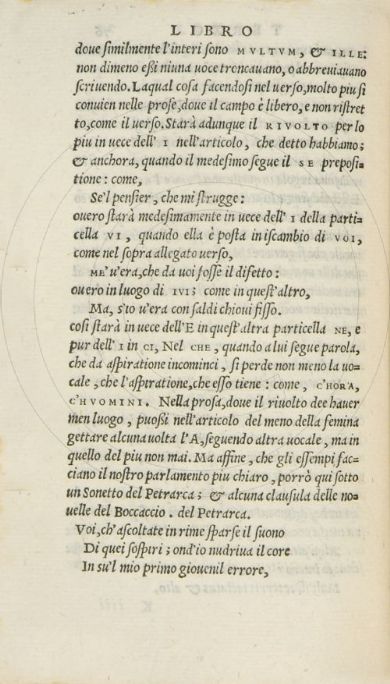 LIBRO
doue similmente l'interi sono MVLTVM, & ILLE:
non dimeno eßi niuna uoce troncauano, o abbreviauano
scriuendo. Laqual cosa facendosi nel uerso, molto piu si
conuien nelle prose, doue il campo è libero, e non ristret
to, come il uerso. Starà adunque il RIVOLTO per lo
piu in uece dell' I nell'articolo, che detto habbiamo;
& anchora, quando il medesimo segue il SE preposi-
tione: come,
Se'l pensier, che mi strugge:
ouero starà medesimamente in uece dell' I della parti
cella VI, quando ella è posta in iscambio di VOI,
come nel sopra allegato uerso,
ME'V'era, che da uoi fosse il difetto:
ouero in luogo di IVI; come in quest'altro,
Ma, s'io u'era con saldi chioui fisso.
cosi starà in uece dell'E in quest'altra particella NE, e
pur dell' I in CI, Nel CHE, quando a lui segue parola,
che da aspiratione incominci, si perde non meno la uo-
cale, che l'aspiratione, che esso tiene: come, C'HORA,
C'HVOMINI. Nella prosa, doue il riuolto dee hauer
men luogo, puoßi nell'articolo del meno della femina
gettare alcuna uolta l'A, seguendo altra uocale, ma in
quello del piu non mai. Ma affine, che gli essempi fac-
ciano il nostro parlamento piu chiaro, porrò qui sotto
un Sonetto del Petrarca; & alcuna clausula delle no-
uelle del Boccaccio. del Petrarca.
Voi, ch'ascoltate in rime sparse il suono
Di quei sospiri; ond'io nudriua il core
In su'l mio primo giouenil errore,